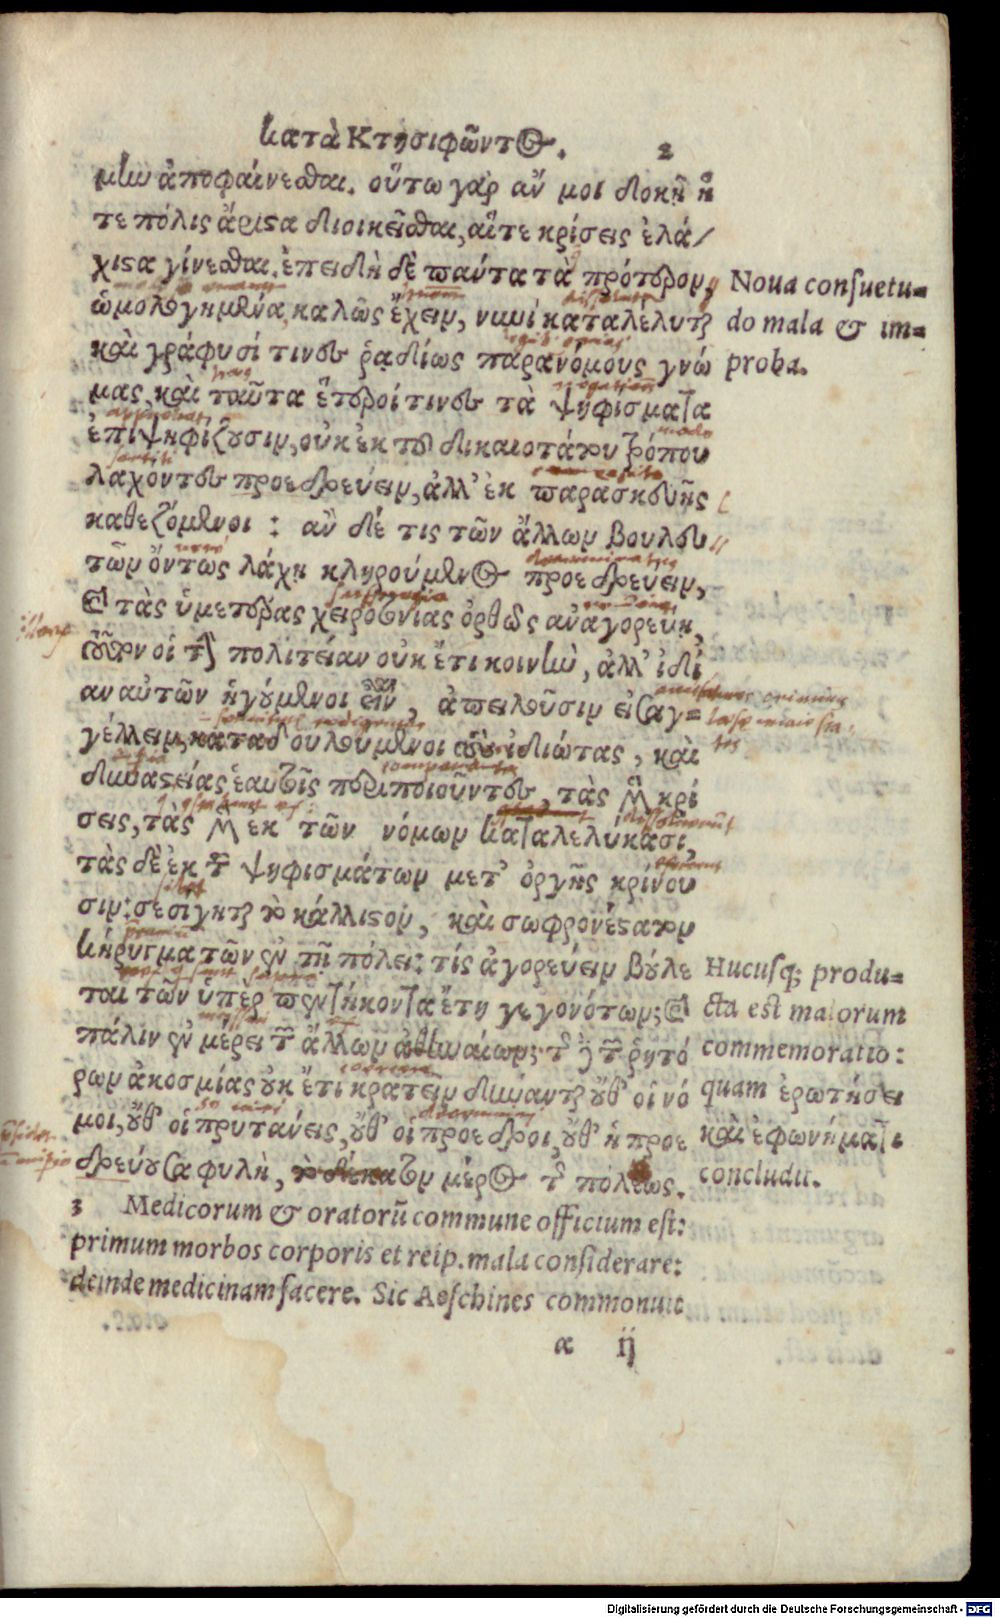 κατὰ Κτησιφῶντος. 2
μὴν ἀποφαίνεσθαι. οὕτω γὰρ ἄν μοι δοκῇ ἥ
τε πόλις ἄριστα διοικεῖσθαι, αἵτε κρίσεις ἐλά/
χιστα γίνεσθαι. ἐπειδὴ δὲ πάντα τὰ πρότερον,
ὡμολογημένα, καλῶς ἔχειν, νυνὶ καταλέλυται
καὶ γράφουσί τινες ῥᾳδίως παρανόμους γνώ
μας, καὶ ταῦτα ἕτεροί τινες τὰ ψηφίσματα
ἐπιψηφίζουσιν, οὐκ ἐκ τοῦ δικαιοτάτου τρόπου
λαχόντες προεδρεύειν, ἀλλ' ἐκ παρασκευῆς
καθεζόμενοι : ἂν δέ τις τῶν ἄλλων βουλευ
τῶν ὄντως λάχῃ κληρούμενος προεδρεύειν,
καὶ τὰς ὑμετέρας χειροτονίας ὀρθῶς ἀναγορεύῃ,
τοῦτον οἱ τὴν πολιτείαν οὐκ ἔτι κοινὴν, ἀλλ' ἰδί
αν αὐτῶν ἡγούμενοι εἶναι, ἀπειλοῦσιν εἰσαγ=
γέλλειν, καταδουλούμενοι τοὺς ἰδιώτας, καὶ
δυναστείας ἑαυτοῖς περιποιοῦντες, τὰς μὲν κρί
σεις, τὰς μὲν ἐκ τῶν νόμων καταλελύκασι,
τὰς δὲ ἐκ τῶν ψηφισμάτων μετ' ὀργῆς κρίνου
σιν: σεσίγηται τὸ κάλλιστον, καὶ σωφρονέστατον
κήρυγμα τῶν ἐν τῇ πόλει: τίς ἀγορεύειν βούλε
ται τῶν ὑπὲρ πεντήκοντα ἔτη γεγονότων; καὶ
πάλιν ἐν μέρει τῶν ἄλλων ἀθηναίων; τῆς δὲ τῶν ῥητό
ρων ἀκοσμίας οὐκ ἔτι κρατεῖν δύνανται οὔθ' οἱ νό
μοι, οὔθ' οἱ πρυτάνεις, οὔθ' οἱ πρόεδροι, οὔθ' ἡ προε
δρεύουσα φυλὴ, τὸ δέκατον μέρος τῆς πόλεως.
3 Medicorum & oratorū commune officium est:
primum morbos corporis et reip. mala considerare:
deinde medicinam facere. Sic Aeschines commonuit
a ij
Noua consuetu=
do mala & im=
proba.
Hucusq; produ=
cta est maiorum
commemoratio:
quam ἐρωτήσει
καὶ ἐφωνήματι
concludit.
Digitalisierung gefördert durch die Deutsche Forschungsgemeinschaft - DFG